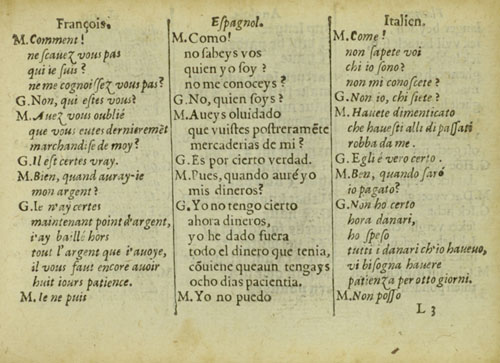 François.
M. Comment!
ne scauez vous pas
qui ie suis?
ne me cognoissez vous pas?
G. Non, qui estes vous?
M. Auez vous oublié
que vous eutes dernieremẽt
marchandise de moy?
G. Il est certes vray.
M. Bien, quand auray-ie
mon argent?
G. Ie n'ay certes
maintenant point d'argent,
i'ay baillé hors
tout l'argent que i'auoye,
il vous faut encore auoir
huit iours patience.
M. Ie ne puis
Espagnol.
M. Como!
no sabeys vos
quien yo soy?
no me conoceys?
G. No, quien soys?
M. Aueys oluidado
que vuistes postreramẽte
mercaderias de mi?
G. Es por cierto verdad.
M. Pues, quando auré yo
mis dineros?
G. Yo no tengo cierto
ahora dineros,
yo he dado fuera
todo el dinero que tenia,
cõuiene queaun tengays
ocho dias pacientia.
M. Yo no puedo
Italien.
M. Come!
non sapete voi
chi io sono?
non mi conoscete?
G. Non io, chi siete?
M. Hauete dimenticato
che hauesti alli di passati
robba da me.
G. Egli é vero certo.
M. Ben, quando saró
io pagato?
G. Non ho certo
hora danari,
ho speso
tutti i danari ch'io haueuo,
vi bisogna hauere
patienza per otto giorni.
M. Non posso
L 3